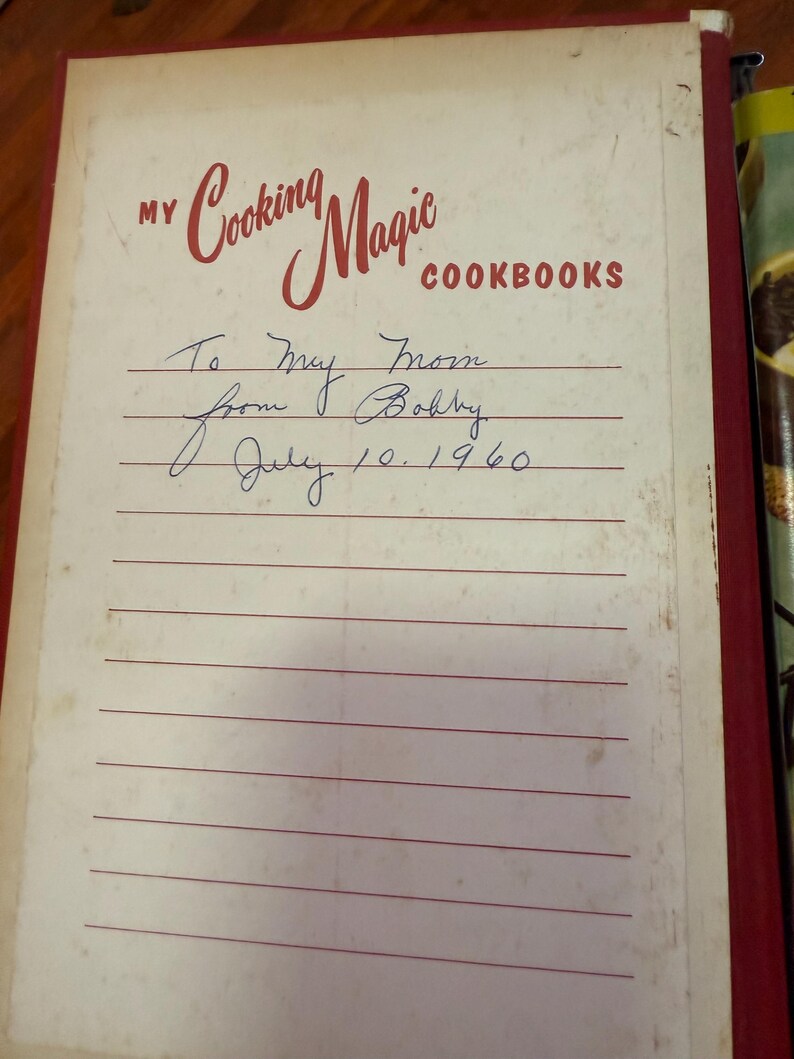 MY Cooking Magic COOKBOOKS
To My Mom
from Bobby
July 10. 1960